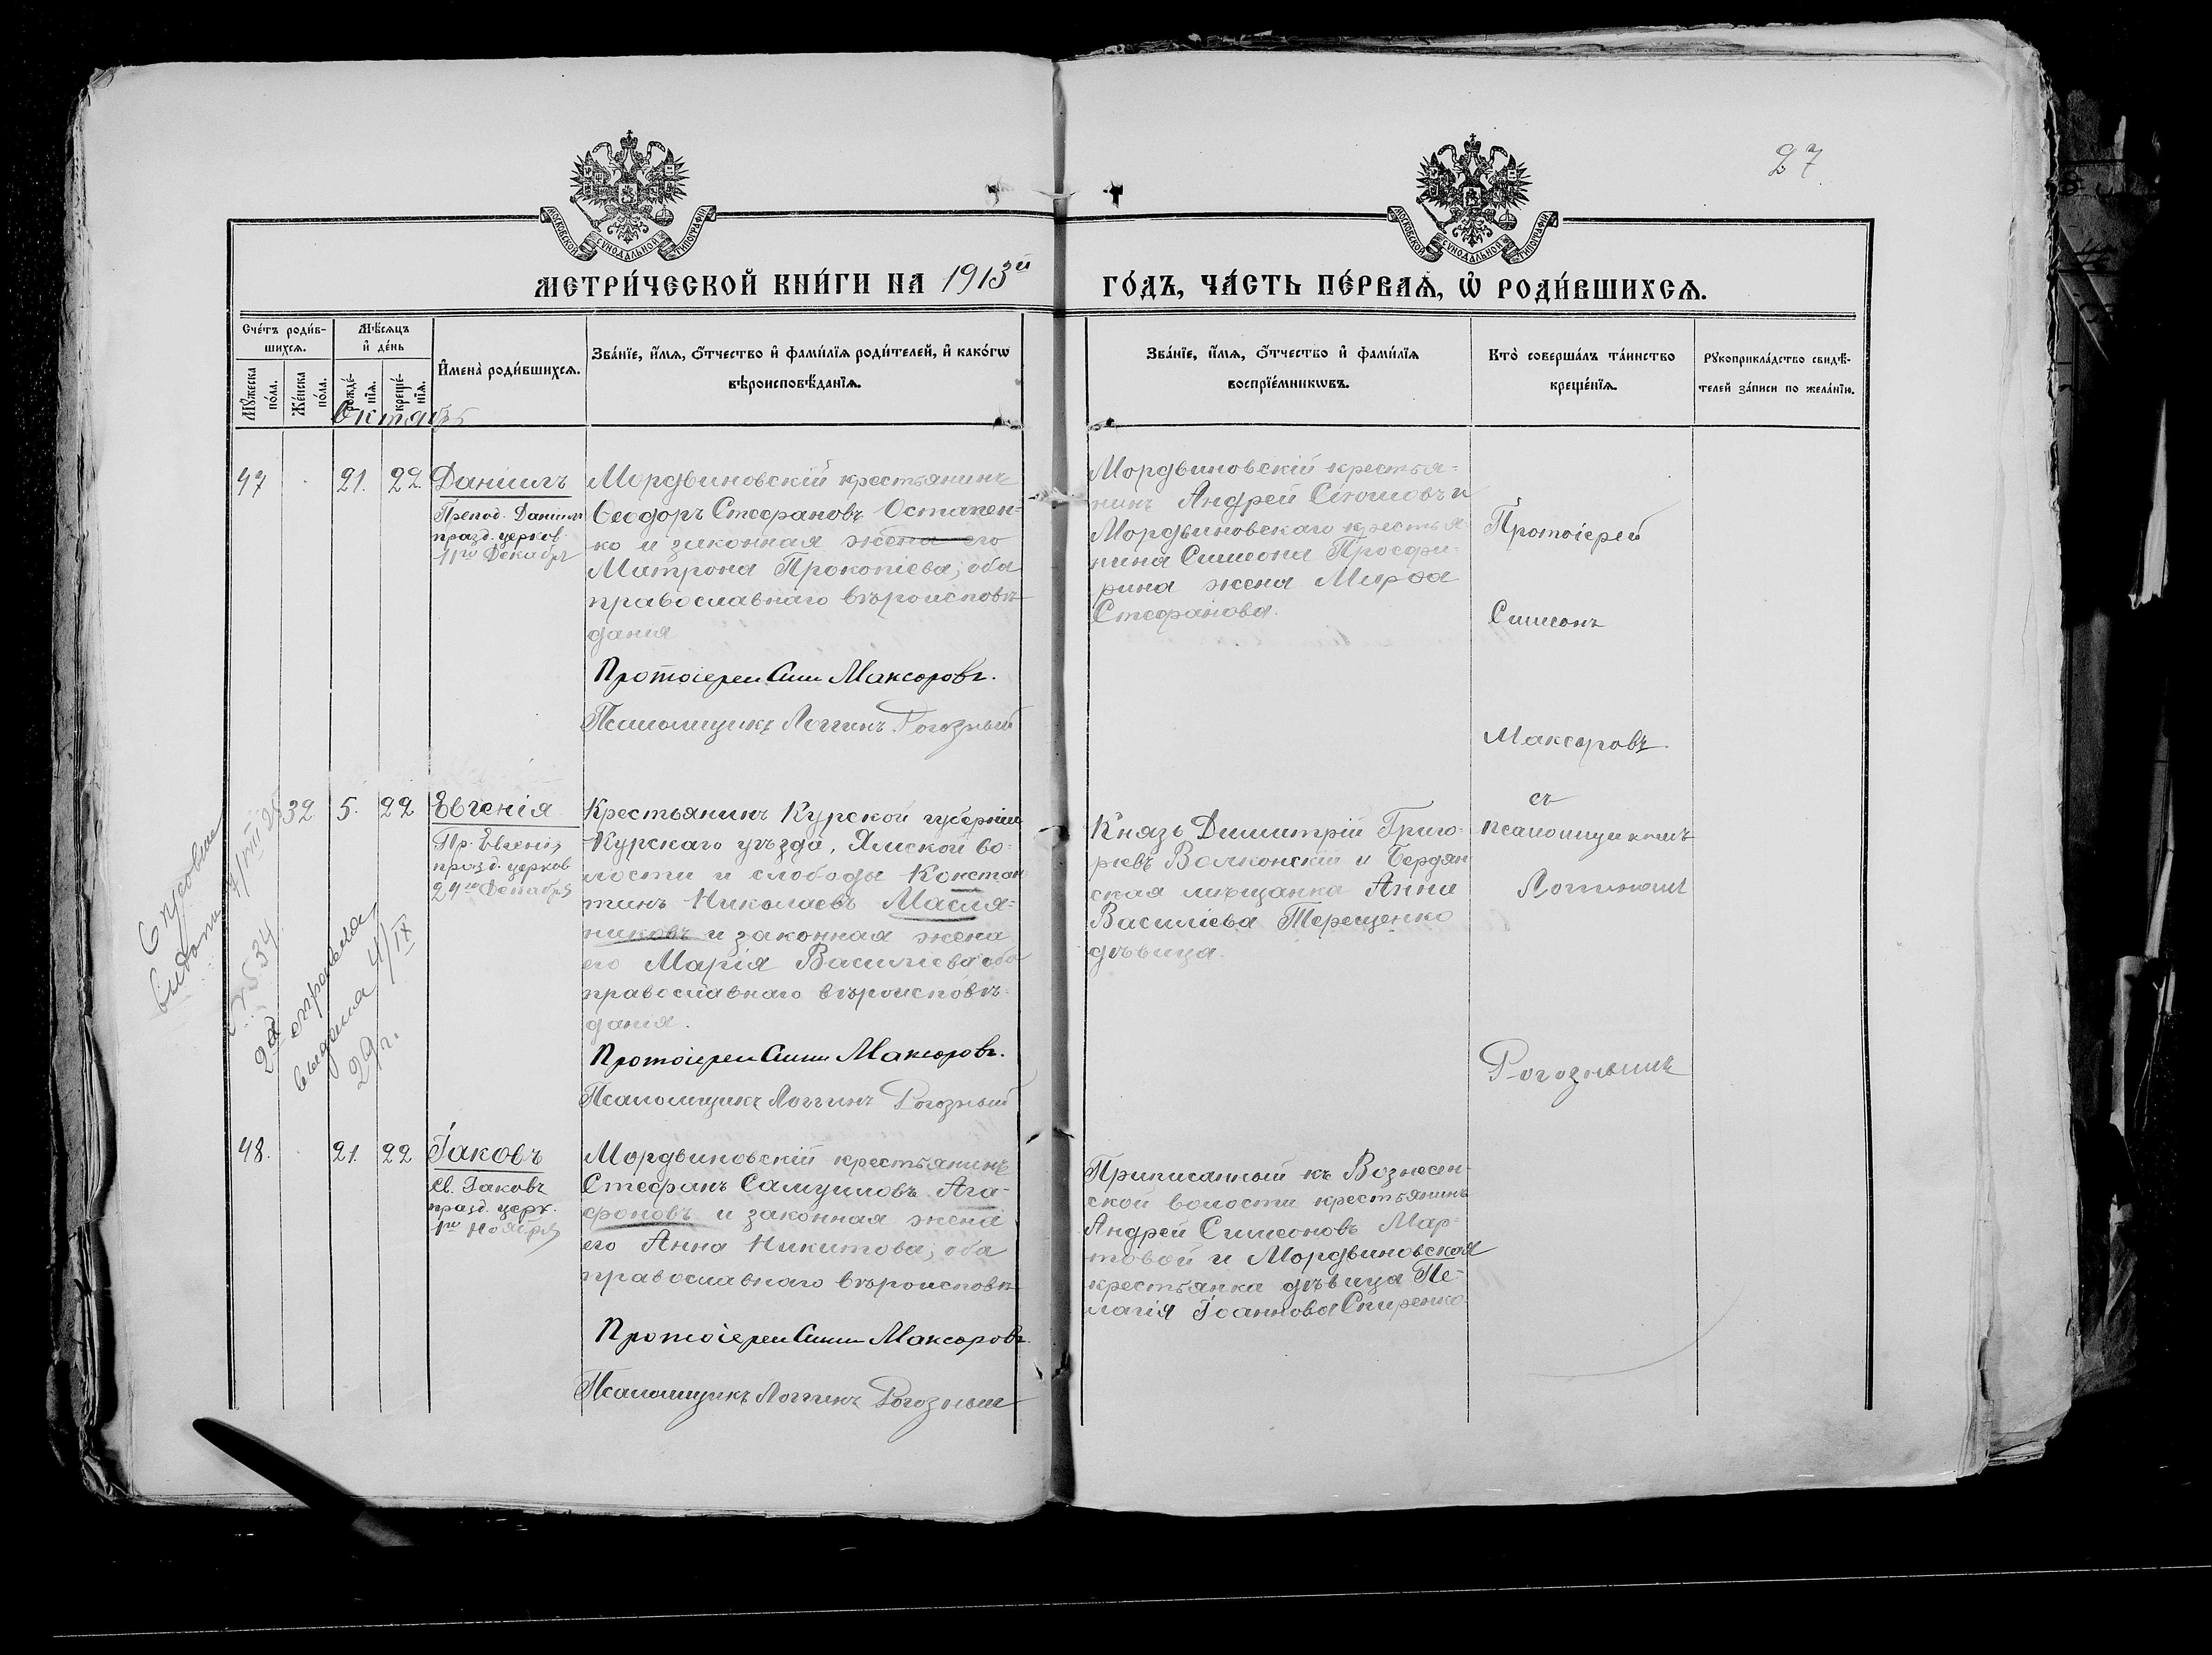 27
МОСКОВСКОЙ СУНОДАЛЬНОЙ ТИПОГРАФІИ
МОСКОВСКОЙ СУНОДАЛЬНОЙ ТИПОГРАФІИ
МЕТРИ́ЧЕСКОЙ КНИ́ГИ НА 1913й
ГО́ДЪ, ЧА́СТЬ ПЕ́РВАѦ, Ѡ҆ РОДИ́ВШИХСѦ.
Сче́тъ роди́в-
шихсѧ.
Мꙋ́жеска
по́ла.
Же́нска
по́ла.
Мѣ́сѧцъ
и҆ де́нь
рожде́-
нїѧ.
креще́-
нїѧ.
И҆мена̀ роди́вшихсѧ.
Зва́нїе, и҆́мѧ, ѻ҆́тчество и҆ фами́лїѧ роди́телей, и҆ како́гѡ
вѣроисповѣ́данїѧ.
Зва́нїе, и҆́мѧ, ѻ҆́тчество и҆ фами́лїѧ
воспрїе́мникѡвъ.
Кто̀ соверша́лъ та́инство
креще́нїѧ.
Рꙋкоприкла́дство свидѣ́-
телей за́писи по жела́нїю.
Октябрь
47
21.
22.
Даніилъ
Препод. Даніила
празд. церков.
11го Декабря
Мордвиновскій крестьянинъ
Ѳеодоръ Стефановъ Остапен-
ко и законная жена его
Матрона Прокопіева, оба
православнаго вѣроисповѣ-
данія
Протоіерей Сим Максоровъ.
Псаломщикъ Логгинъ Рогозный
Мордвиновскій крестья-
нинъ Андрей и
Мордвиновскаго крестья-
нина Симеона Просфи-
рина жена Марѳа
Стефанова.
Протоіерей
Симеонъ
Максоровъ.
съ
псаломщикомъ
Логгиномъ
Рогознымъ
32
5.
22
Евгенія
Пр. Евгенія
празд. церков
24го Декабря
Крестьянинъ Курской губерніи
Курскаго уѣзда, Ямской во-
лости и слободы Констан
тинъ Николаевъ Масля-
никовъ и законная жена
его Марія Василіева оба
православнаго вѣроисповѣ-
данія.
Протоіерей Сим Максоровъ.
Псаломщикъ Логгинъ Рогозный
Князь Димитрій Григо-
ріевъ Волконскій и Бердян
ская мѣщанка Анна
Василіева Терещенко
дѣвица.
Справка
выдана 7/VIII 25
534
2я справка
выдана 4/IX
29 г.
48.
21.
22
Іаковъ
Св. Іаковъ
празд. церк.
1го Ноября
Мордвиновскій крестьянинъ
Стефанъ Самуиловъ Ага-
фоновъ и законная жена
его Анна Никитова, оба
православнаго вѣроисповѣ
Протоіерей Сим Максоровъ.
Псаломщикъ Логгинъ Рогозный
Приписанный къ Вознесен-
ской волости крестьянинъ
Андрей Симеоновъ Мар-
товой и Мордвиновская
крестьянка дѣвица Пе-
лагія Іоаннова Спиренко